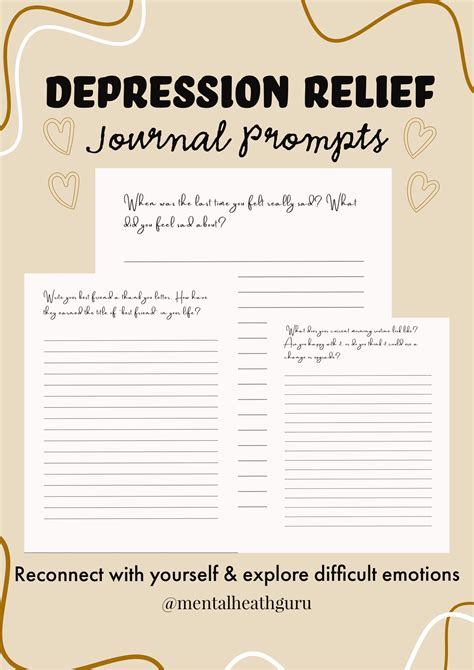 DEPRESSION RELIEF
Journal Prompts
When was the last time you felt really sad? What
did you feel sad about?
Write your best friend a thank you letter. How have
they earned the title of 'best friend' in your life?
What does your current morning routine look like?
Are you happy with it, or do you think it could use a
change or upgrade?
Reconnect with yourself & explore difficult emotions
@mentalheathguru